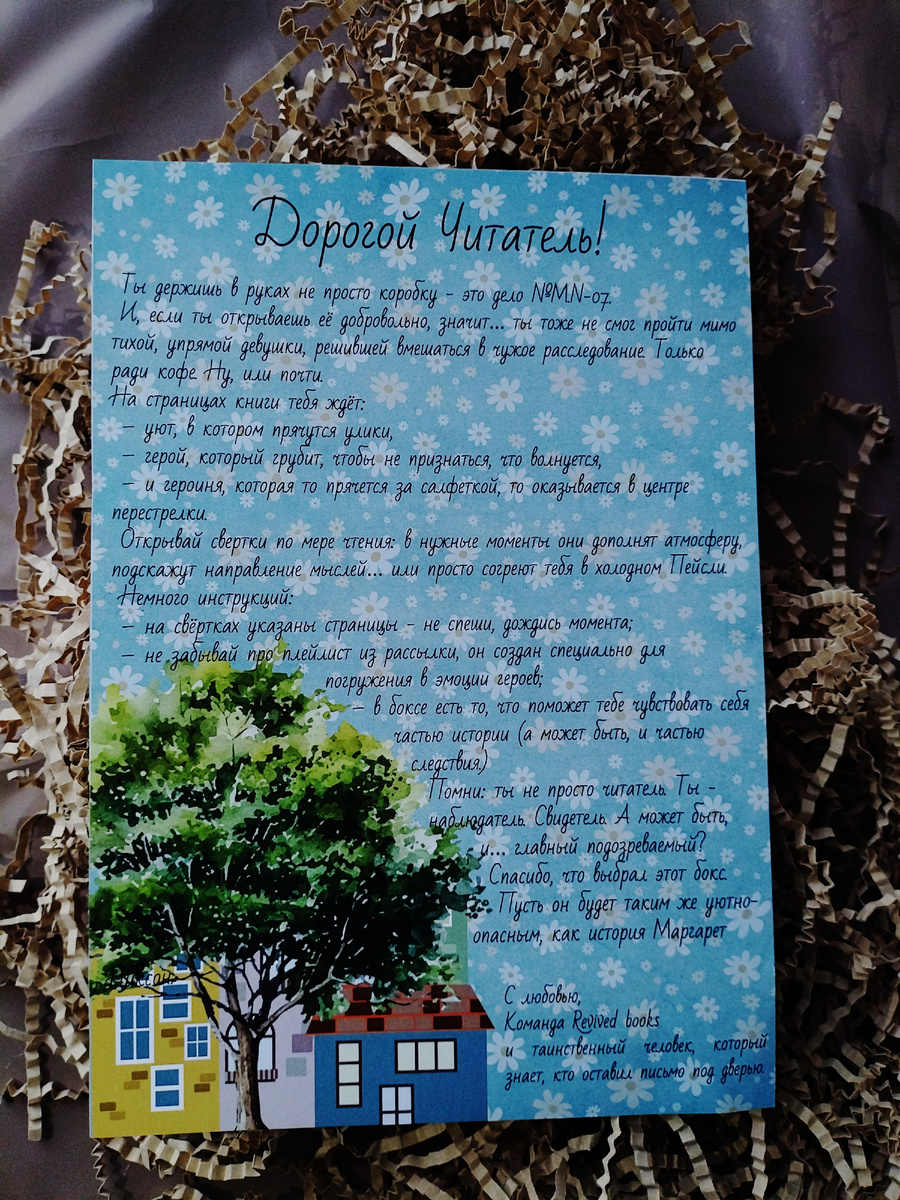 Дорогой Читатель!
Ты держишь в руках не просто коробку - это дело №MN-07.
И, если ты открываешь её добровольно, значит... ты тоже не смог пройти мимо
тихой, упрямой девушки, решившей вмешаться в чужое расследование. Только
ради кофе. Ну, или почти.
На страницах книги тебя ждёт:
– уют, в котором прячутся улики,
– герой, который грубит, чтобы не признаться, что волнуется,
– и героиня, которая то прячется за салфеткой, то оказывается в центре
перестрелки.
Открывай свертки по мере чтения: в нужные моменты они дополнят атмосферу,
подскажут направление мыслей... или просто согреют тебя в холодном Пейсли.
Немного инструкций:
– на свёртках указаны страницы - не спеши, дождись момента;
– не забывай про плейлист из рассылки, он создан специально для
погружения в эмоции героев;
– в боксе есть то, что поможет тебе чувствовать себя
частью истории (а может быть, и частью
следствия)
Помни: ты не просто читатель. Ты -
наблюдатель. Свидетель. А может быть,
и... главный подозреваемый?
Спасибо, что выбрал этот бокс.
Пусть он будет таким же уютно-
опасным, как история Маргарет
С любовью,
Команда Revived books
и таинственный человек, который
знает, кто оставил письмо под дверью.